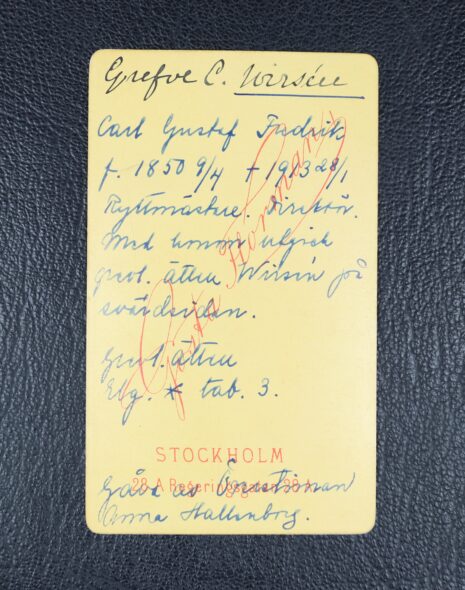 Grefve C. Wirsén
Carl Gustaf Fredrik
f. 1850 9/4 † 1913 28/1
Ryttmästare. Direktör.
Med honom utgick
grevl. ätten Wirsén på
svärdsidan.
Grevl. ätten
Elg. * tab. 3.
Gösta Florman
STOCKHOLM
28 A Regeringsgatan 28 A
Gåva av Överstinnan
Anna Hallenborg.